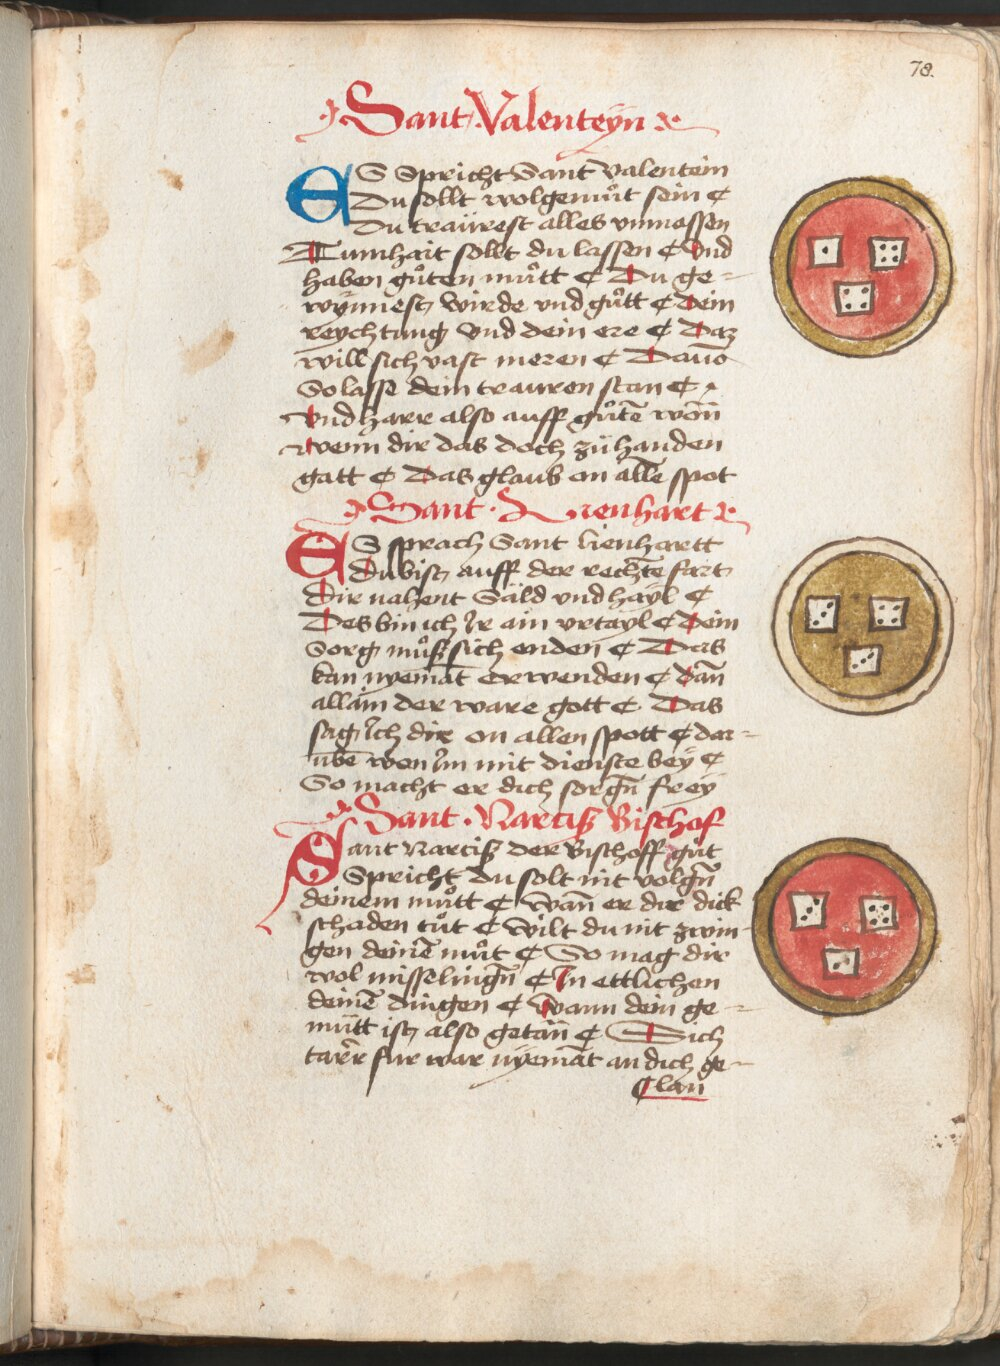 78.
Sant Valenteÿn
ES Spricht Sant Valentein
Du sollt wolgemůt sein ¢
Du traürest alles vnmossen
Tumhait sollt du lassen ¢ Vnd
haben gůten můtt ¢ Du ge=
wÿnnest wirde vnd gůtt ¢ Dein
reychtung Vnd dein ere ¢ Daz
will sich vast meren ¢ Dauō
So lasse dein trauren stan ¢
Vnd harr also auff gůtē wōn
wenn dir das doch zů handen
gatt ¢ Das glaub on allē spot
Sant Lienhart
ES sprach Sant lienhartt
Du bist auff der rechtē fart
Dir nahent Säld vnd hayl ¢
Des bin ich Ir ain vrtayl ¢ Dein
Sorg můß sich enden ¢ Das
kan nyemāt erwenden ¢ Dān
allain der ware gott ¢ Das
sag Ich dir on allen spott ¢ dar=
ubē won Im mit dienste beÿ ¢
So macht er dich sorgn̄ freÿ
Sant Narciß Bischof
Sant Narciß der Bischoff gůt
Spricht Du solt nit volgn̄
deinem můtt ¢ Wan̄ er dir dick
schaden tůt ¢ Wilt du nit zwin=
gen deinē můt ¢ So mag dir
wol misselingn̄ ¢ In ettlichen
deinē dingen ¢ Wann dein ge=
mütt ist also getān ¢ Sich
tarr fur war nyemāt an dich ge=
lan